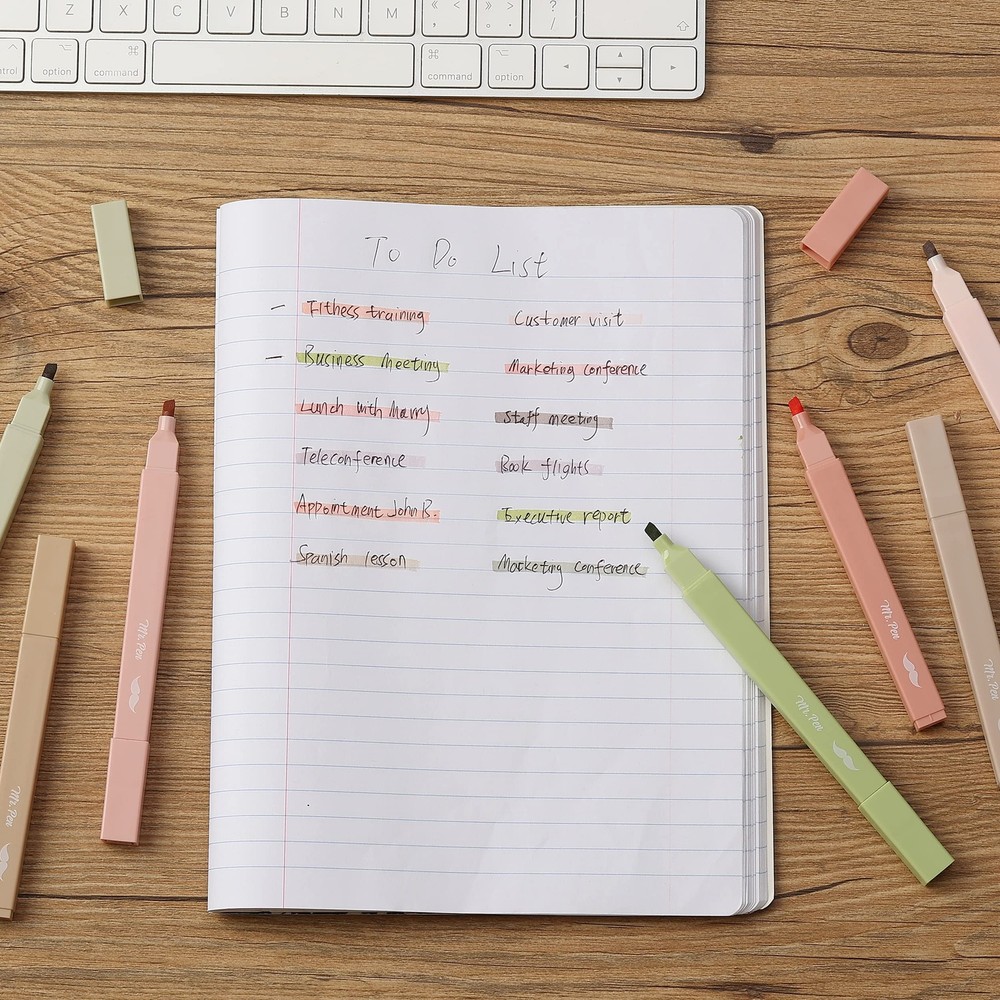 Z X C V B N M « < » > ? /
control option command command option
To Do List
- Fithess training Customer visit
- Business Meeting Marketing conference
Lunch with Marry Staff meeting
Teleconference Book flights
Appointment John B. Executive report
Spanish lesson Marketing Conference
Mr. Pen
Mr. Pen
Mr. Pen
Mr. Pen
Mr. Pen